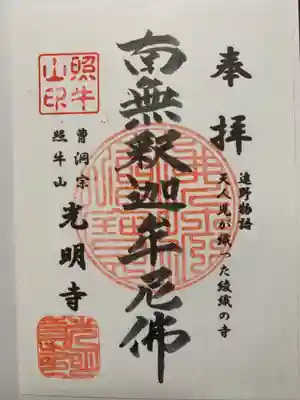 奉拝
遠野物語
天人児が織った綾織の寺
南無釈迦牟尼佛
照牛山印
曹洞宗
照牛山
光明寺